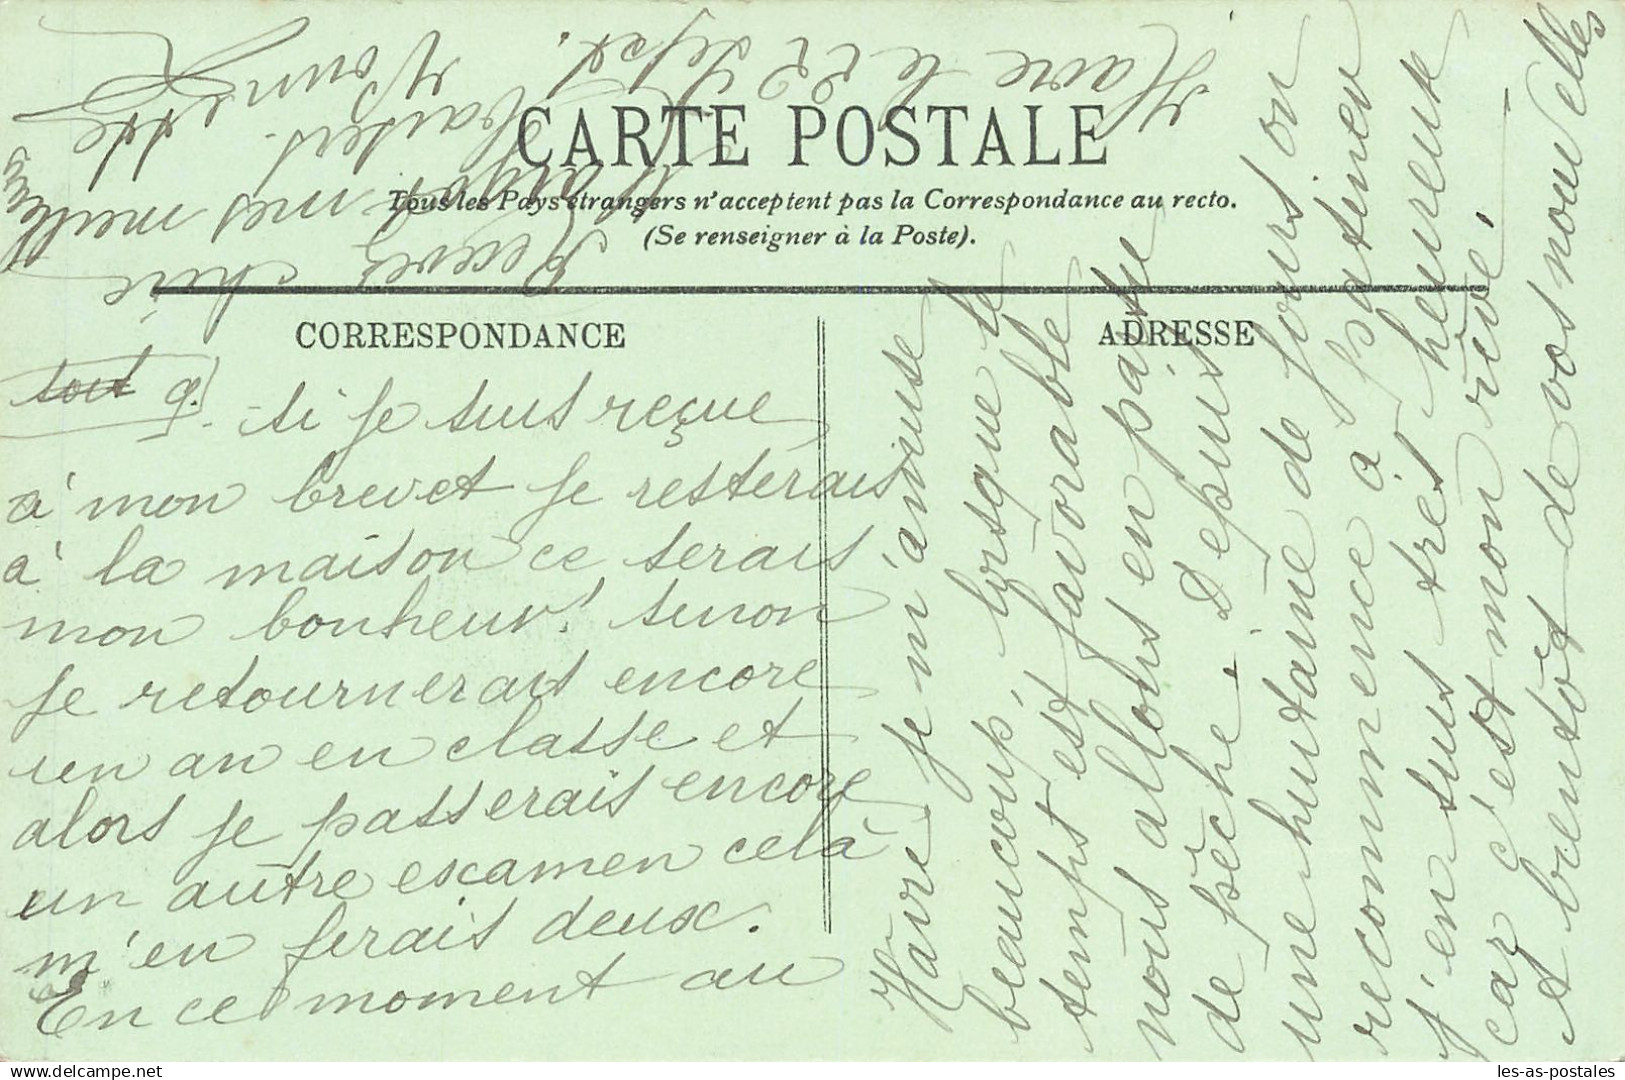 CARTE POSTALE
Tous les Pays étrangers n'acceptent pas la Correspondance au recto.
(Se renseigner à la Poste).
CORRESPONDANCE
ADRESSE
si je suis reçue
à mon brevet je resterais
à la maison ce serais
mon bonheur! sinon
je retournerais encore
un an en classe et
alors je passerais encore
un autre examen celà
m'en ferais deux.
En ce moment au
Hâvre je m'amuse
beaucoup, lorsque le
temps est favorable
nous allons en partie
de pêche. Depuis
une huitaine de jours on
recommence à patiner
j'en suis très heureuse
car c'est mon rêve.
A bientôt de vos nouvelles
Recevez chère
mes meilleurs
baisers.
Havre le 22 Sept.
les-as-postales